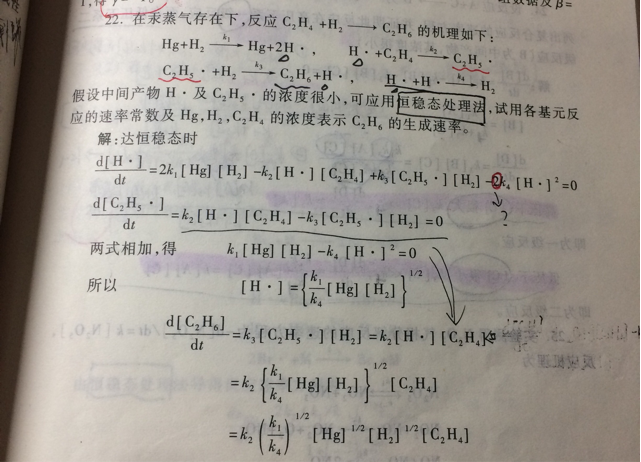 22. 在汞蒸气存在下,反应 C₂H₄ +H₂ ⟶ C₂H₆ 的机理如下:
Hg+H₂ —k₁→ Hg+2H·, H·+C₂H₄ —k₂→ C₂H₅·
C₂H₅·+H₂ —k₃→ C₂H₆+H· H·+H· —k₄→ H₂
假设中间产物 H·及 C₂H₅·的浓度很小,可应用恒稳态处理法,试用各基元反
应的速率常数及 Hg,H₂,C₂H₄ 的浓度表示 C₂H₆ 的生成速率。
解:达恒稳态时
d[H·]/dt=2k₁[Hg][H₂]-k₂[H·][C₂H₄]+k₃[C₂H₅·][H₂]-2k₄[H·]²=0
?
d[C₂H₅·]/dt=k₂[H·][C₂H₄]-k₃[C₂H₅·][H₂]=0
两式相加,得 k₁[Hg][H₂]-k₄[H·]²=0
所以 [H·]={k₁/k₄[Hg][H₂]}^1/2
d[C₂H₆]/dt=k₃[C₂H₅·][H₂]=k₂[H·][C₂H₄]
=k₂{k₁/k₄[Hg][H₂]}^1/2[C₂H₄]
=k₂(k₁/k₄)^1/2[Hg]^1/2[H₂]^1/2[C₂H₄]